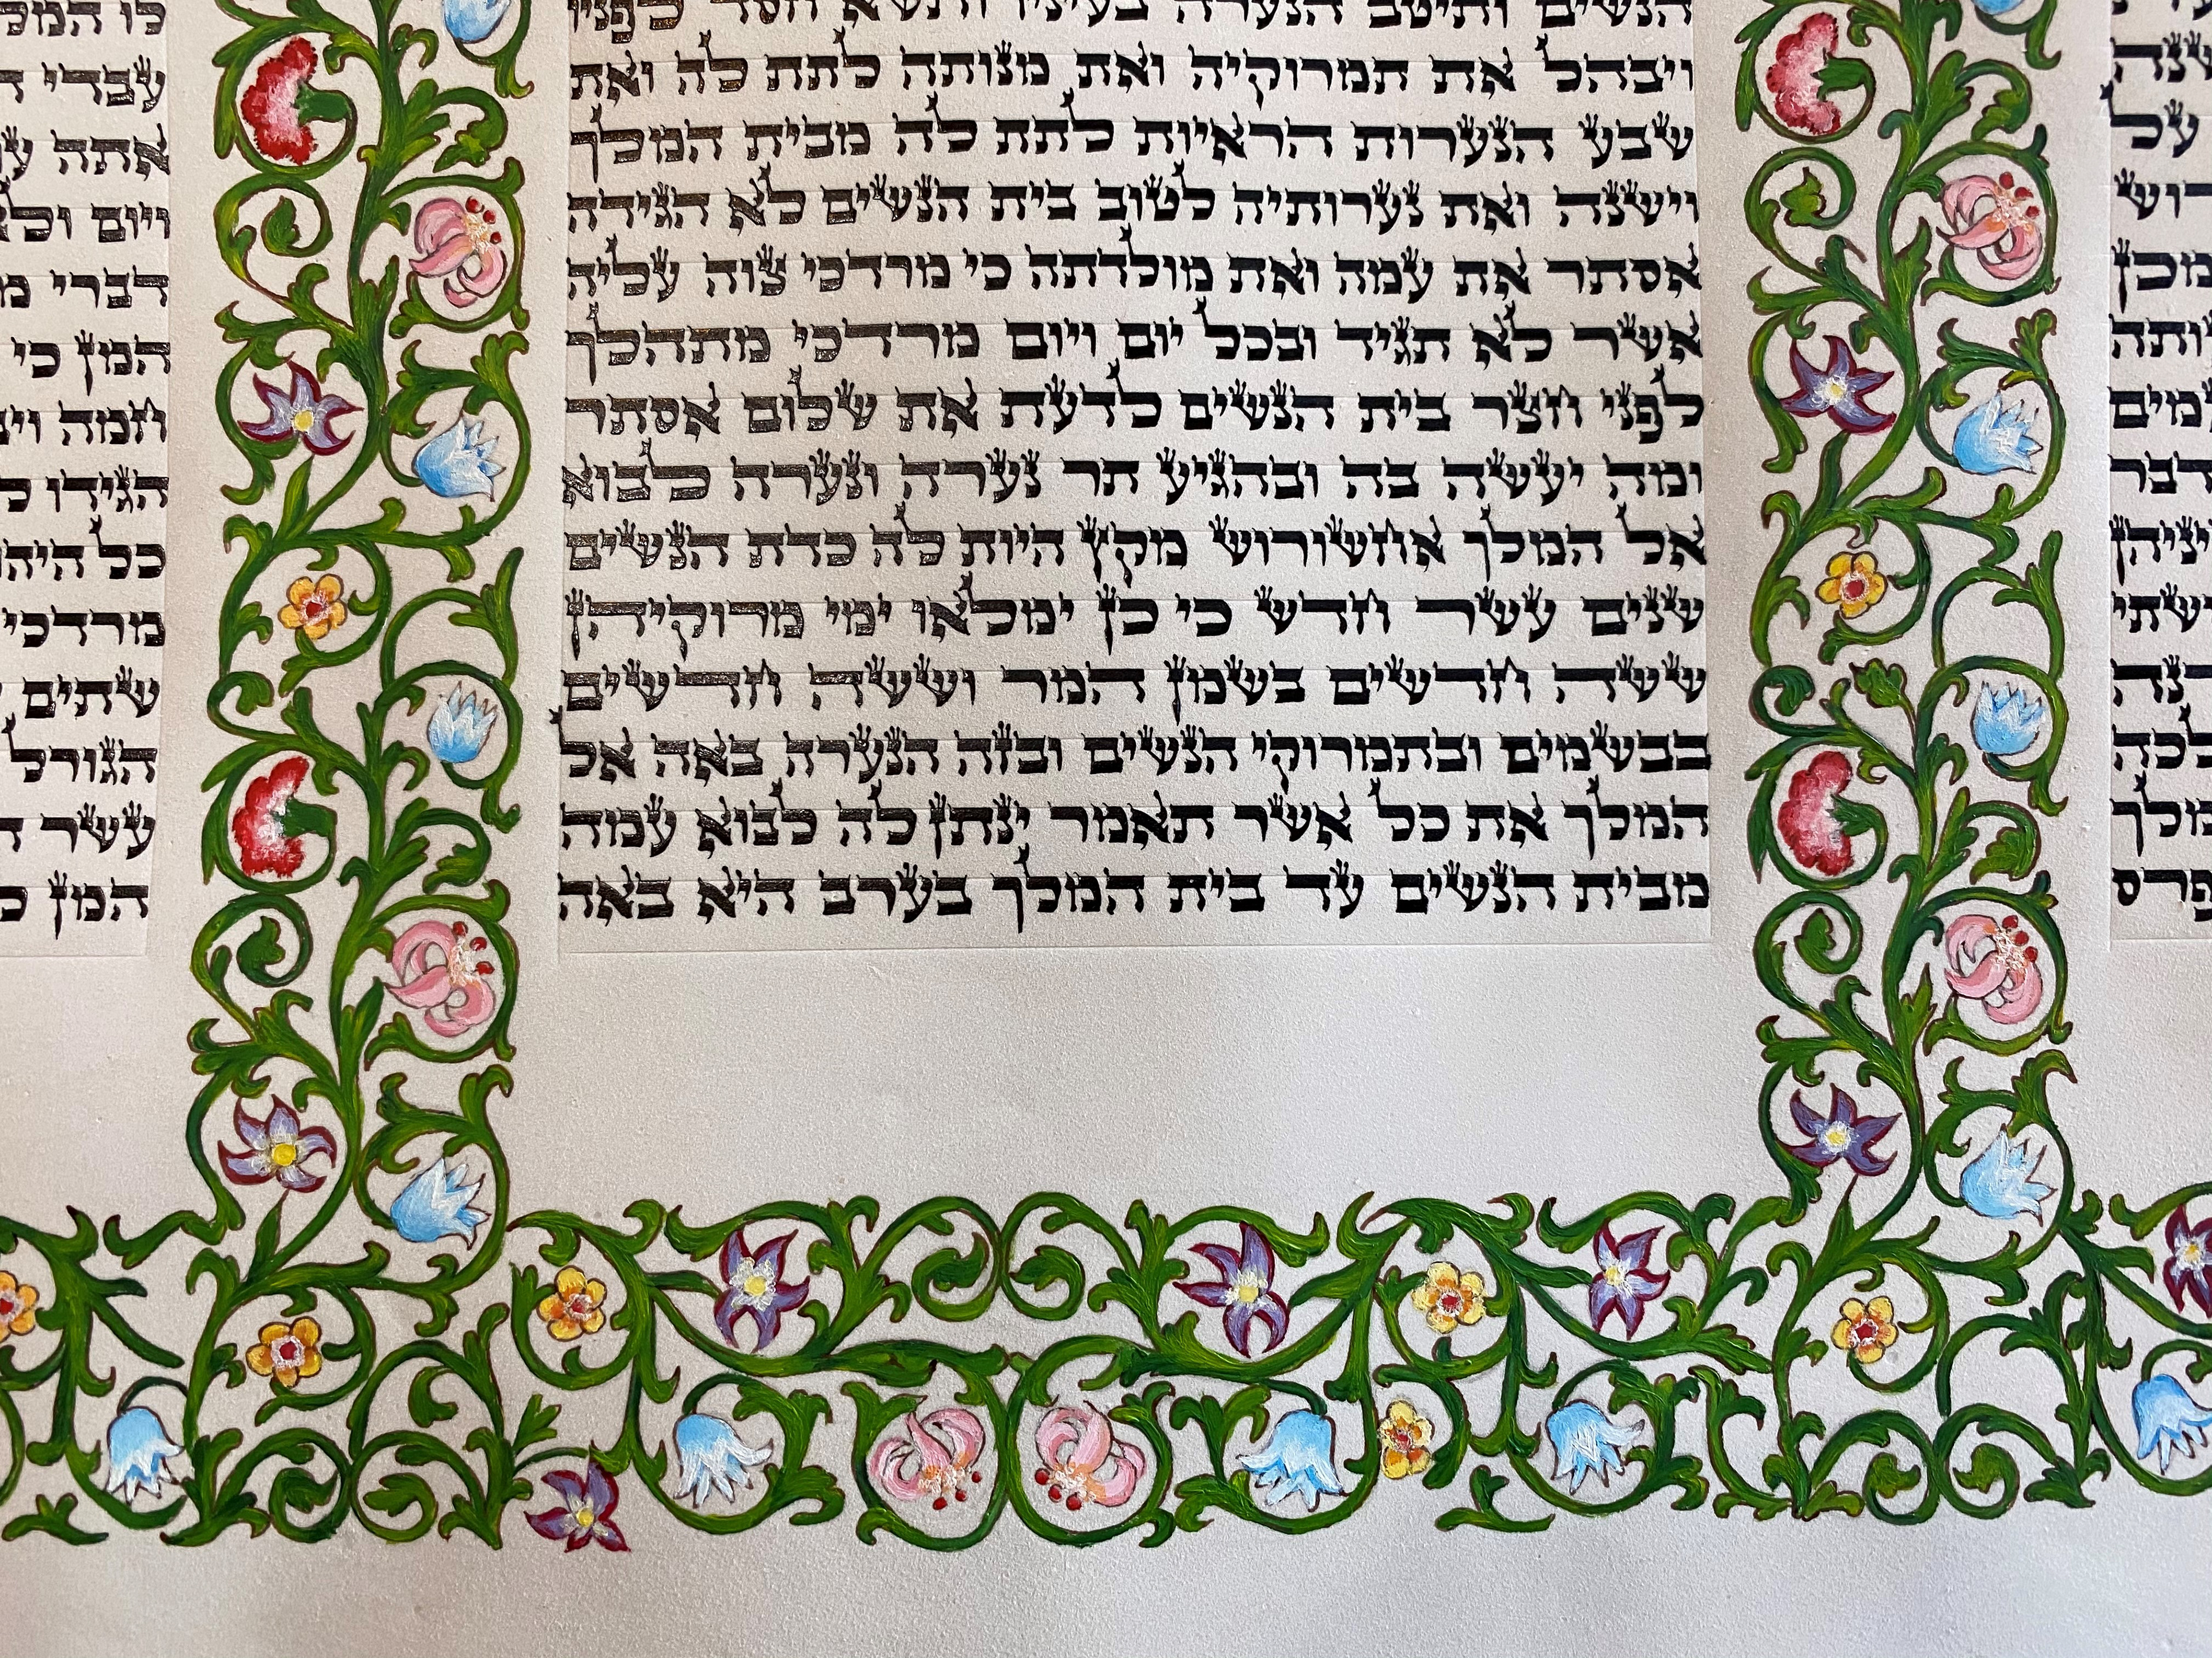 הנשים ותיטב הנערה בעיניו ותשא חסד לפניו
ויבהל את תמרוקיה ואת מנותה לתת לה ואת
שבע הנערות הראיות לתת לה מבית המלך
וישנה ואת נערותיה לטוב בית הנשים לא הגידה
אסתר את עמה ואת מולדתה כי מרדכי צוה עליה
אשר לא תגיד ובכל יום ויום מרדכי מתהלך
לפני חצר בית הנשים לדעת את שלום אסתר
ומה יעשה בה ובהגיע תר נערה ונערה לבוא
אל המלך אחשורוש מקץ היות לה כדת הנשים
שנים עשר חדש כי כן ימלאו ימי מרוקיהן
ששה חדשים בשמן המר וששה חדשים
בבשמים ובתמרוקי הנשים ובזה הנערה באה אל
המלך את כל אשר תאמר ינתן לה לבוא עמה
מבית הנשים עד בית המלך בערב היא באה
לו
עבדי
אתה
ויום
דברי
המן כי
חמה
הגידו
כל
מרדכי
שתים
הגורל
עשר
המן